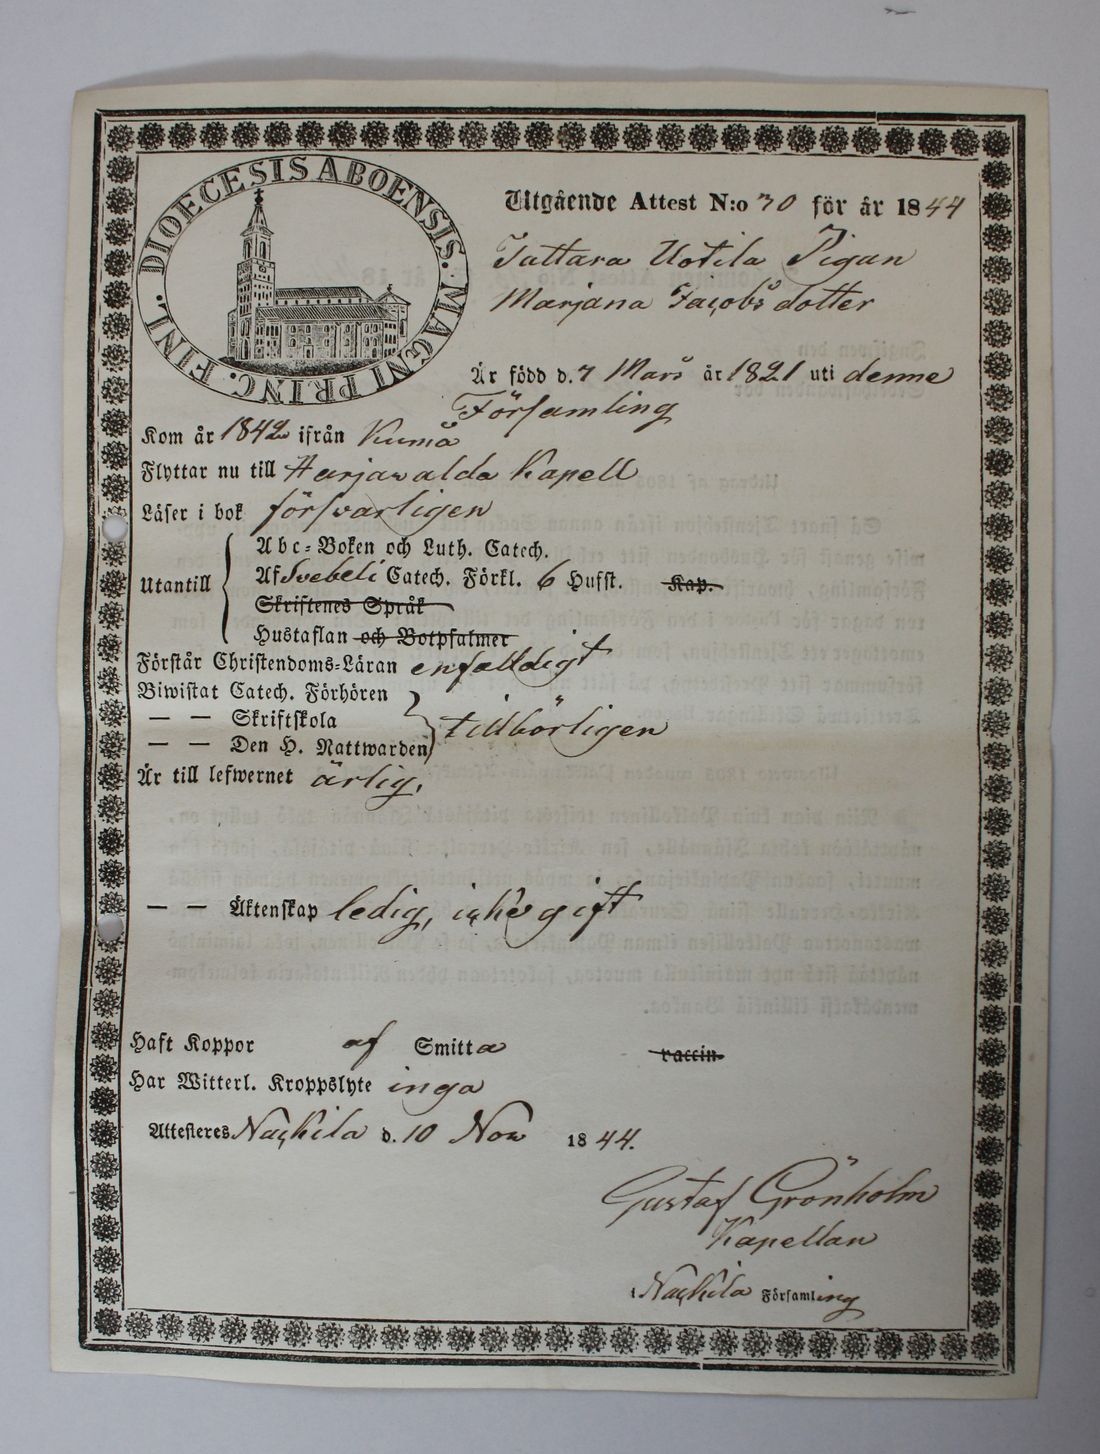 DIOECESIS ABOENSIS. MAGNI PRINC. FINL.
Utgående Attest N:o 30 för år 1844
Tattara Uotila Pigan
Marjana Jacobsdotter
Är född d. 7 Mars år 1821 uti denne
Församling
Kom år 1842 ifrån Kumå
Flyttar nu till Harjawalda Kapell
Läser i bok försvarligen
Utantill
Abc-Boken och Luth. Catech.
Af Svebeli Catech. Förkl. 6 Hufst. Kap.
Skriftenes Språk
Hustaflan och Botpsalmer
Förstår Christendoms-Läran enfalldigt
Biwistat Catech. Förhören
— — Skriftskola
— — Den H. Nattwarden
tillbörligen
Är till lefwernet ärlig,
— — Äktenskap ledig, icke gift
Haft Koppor af Smitta vaccin.
Har Witterl. Kroppslyte inga
Attesteres Nackila d. 10 Nov 1844.
Gustaf Grönholm
Kapellan
i Nackila Församling